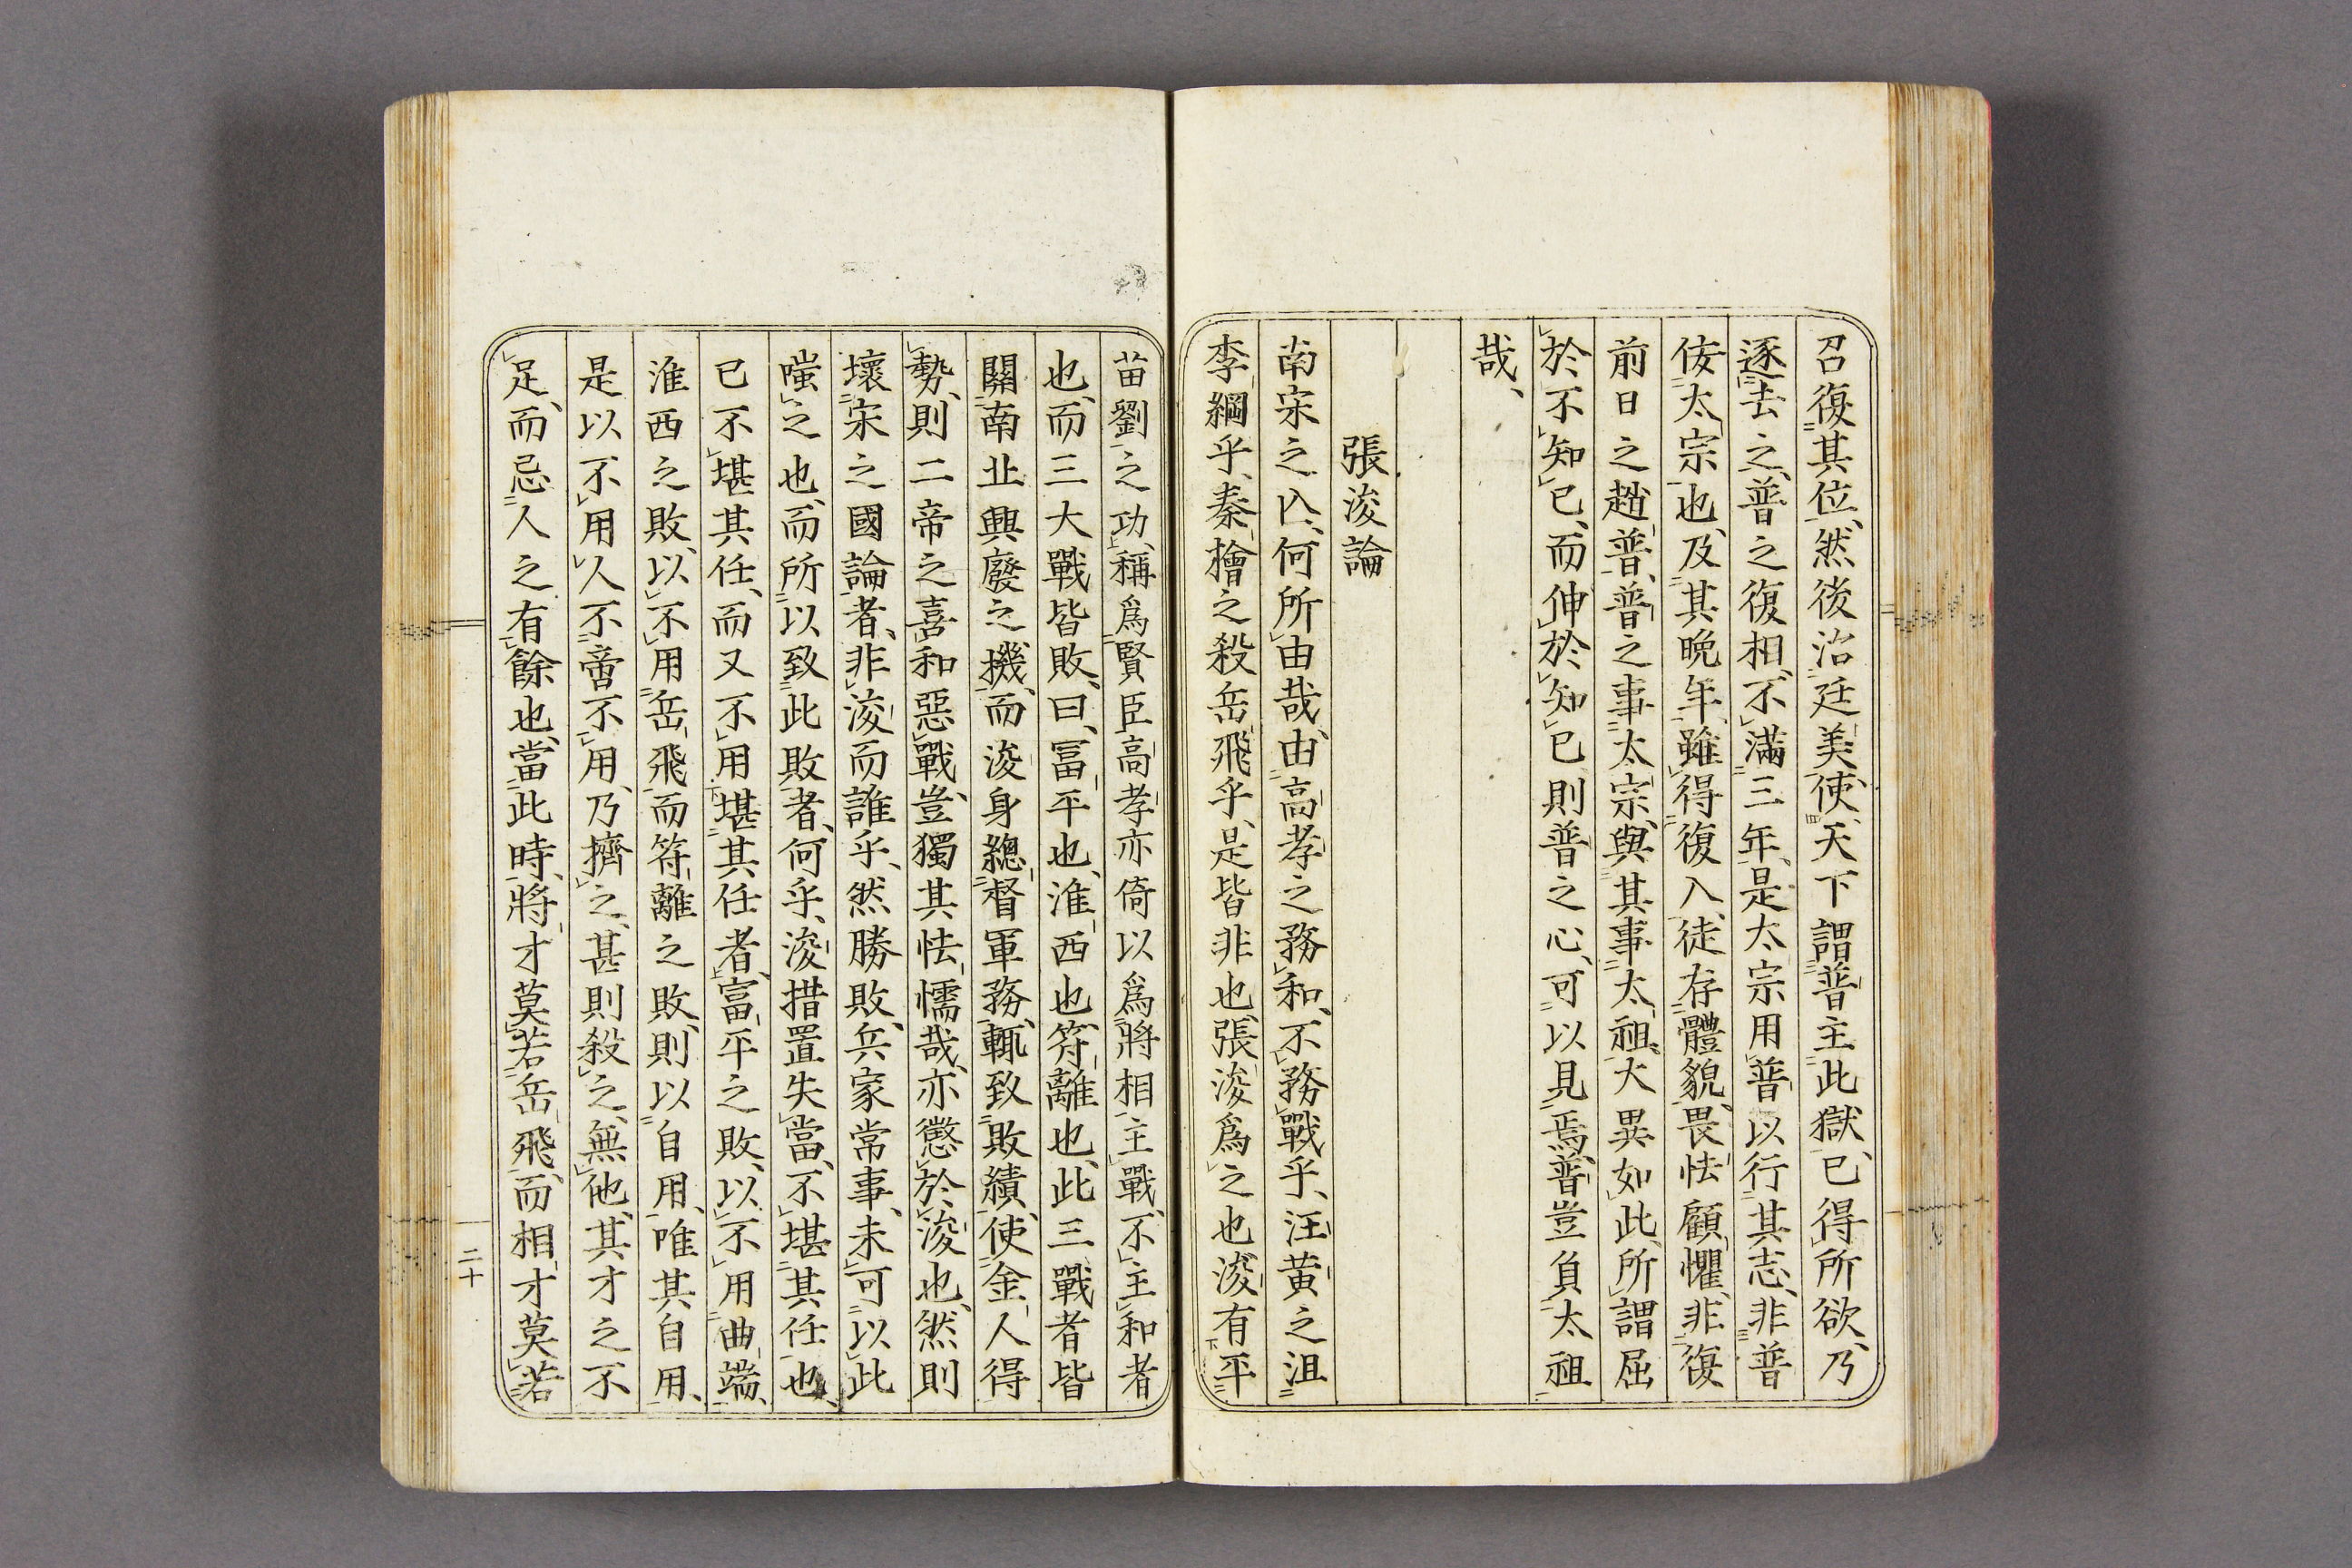 召復其位、然後治廷美、使天下謂普主此獄、已得所欲、乃
逐去之、普之復相、不滿三年、是太宗用普以行其志、非普
侫太宗也、及其晩年、雖得復入、徒存體貌、畏怯顧懼、非復
前日之趙普、普之事太宗、與其事太祖、大異如此、所謂屈
於不知已、而伸於知已、則普之心、可以見焉、普豈負太祖
哉、
張浚論
南宋之亾、何所由哉、由高孝之務和、不務戰乎、汪黄之沮
李綱乎、秦檜之殺岳飛乎、是皆非也、張浚爲之也、浚有平
苗劉之功、稱爲賢臣、高孝亦倚以爲將相、主戰、不主和者
也、而三大戰皆敗、曰、富平也、淮西也、符離也、此三戰者皆
關南北興廢之機、而浚身總督軍務、輒致敗績、使金人得
勢、則二帝之喜和惡戰、豈獨其怯懦哉、亦懲於浚也、然則
壞宋之國論者、非浚而誰乎、然勝敗、兵家常事、未可以此
嗤之也、而所以致此敗者、何乎、浚措置失當、不堪其任也、
已不堪其任、而又不用堪其任者、富平之敗、以不用曲端、
淮西之敗、以不用岳飛、而符離之敗、則以自用、唯其自用、
是以不用人、不啻不用、乃擠之、甚則殺之、無他、其才之不
足、而忌人之有餘也、當此時、將才莫若岳飛、而相才莫若
二十